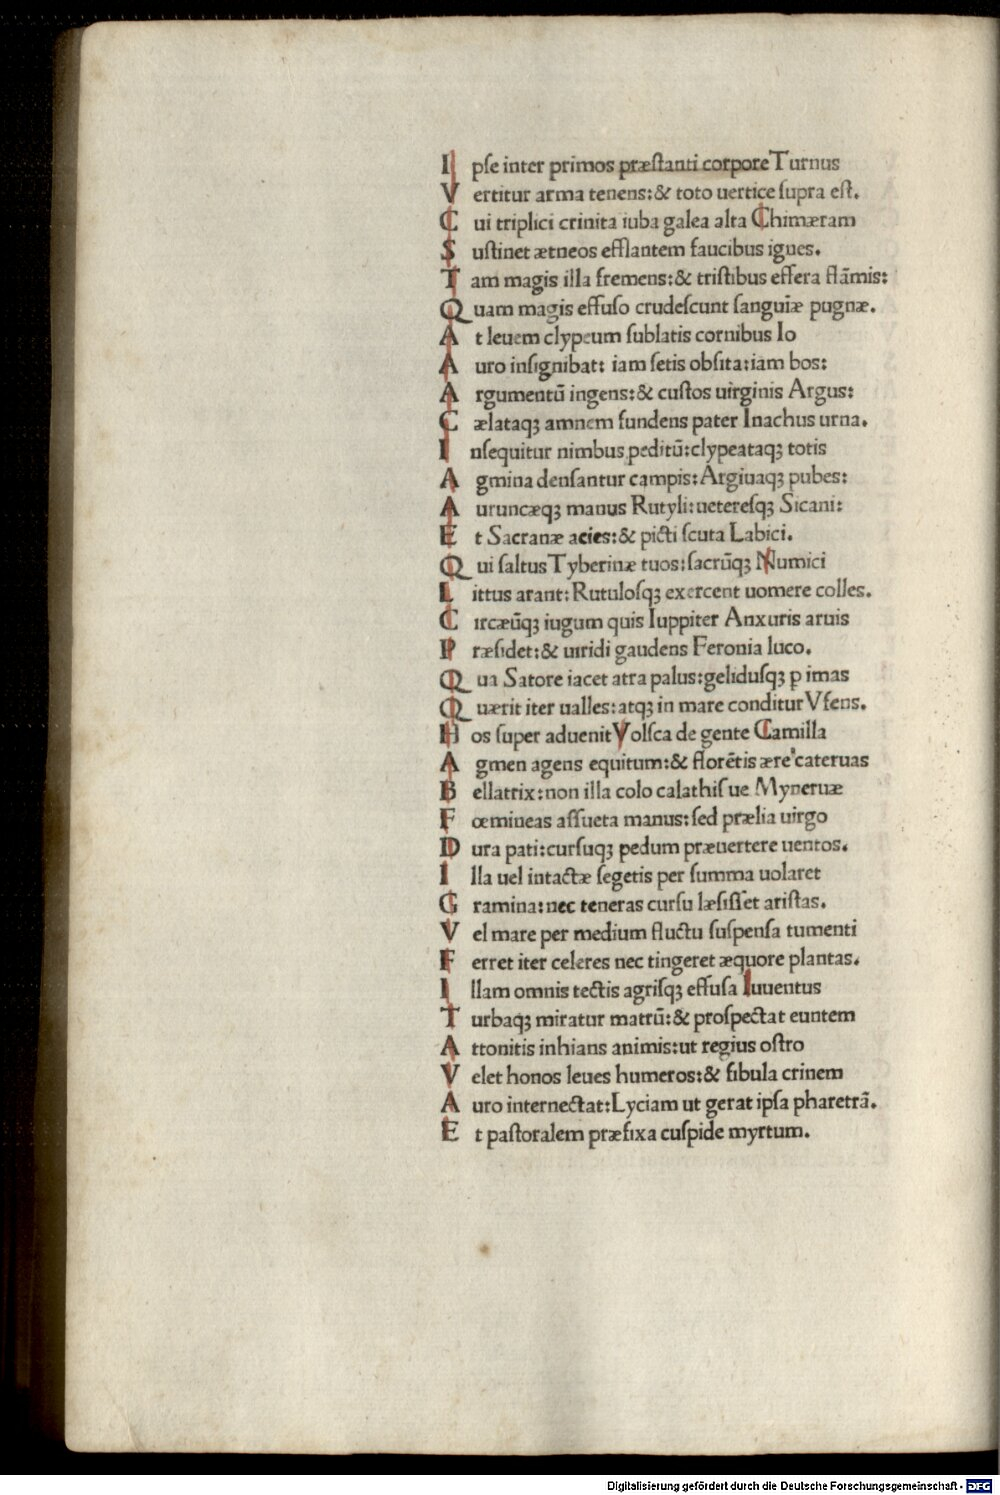 I pſe inter primos præſtanti corpore Turnus
V ertitur arma tenens:& toto uertice ſupra eſt.
C ui triplici crinita iuba galea alta Chimæram
S uſtinet ætneos efflantem faucibus igues.
T am magis illa fremens:& triſtibus effera flāmis:
Q uam magis effuſo crudeſcunt ſanguīæ pugnæ.
A t leuem clypeum ſublatis cornibus Io
A uro inſignibat: iam ſetis obſita:iam bos:
A rgumentū ingens:& cuſtos uirginis Argus:
C ælataqꝫ amnem fundens pater Inachus urna.
I nſequitur nimbus peditū:clypeataqꝫ totis
A gmina denſantur campis:Argiuaqꝫ pubes:
A uruncæqꝫ manus Rutyli:uetereſqꝫ Sicani:
E t Sacranæ acies:& picti ſcuta Labici.
Q ui ſaltus Tyberinæ tuos:ſacrūqꝫ Numici
L ittus arant:Rutuloſqꝫ exercent uomere colles.
C ircæūqꝫ iugum quis Iuppiter Anxuris aruis
P ræſidet:& uiridi gaudens Feronia luco.
Q ua Satore iacet atra palus:geliduſqꝫ ꝑ imas
Q uærit iter ualles:atqꝫ in mare conditur Vfens.
H os ſuper aduenit Volſca de gente Camilla
A gmen agens equitum:& florētis ære cateruas
B ellatrix:non illa colo calathiſue Myneruæ
F œmineas aſſueta manus:ſed prælia uirgo
D ura pati:curſuqꝫ pedum præuertere uentos.
I lla uel intactæ ſegetis per ſumma uolaret
G ramina:nec teneras curſu læſiſſet ariſtas.
V el mare per medium fluctu ſuſpenſa tumenti
F erret iter celeres nec tingeret æquore plantas.
I llam omnis tectis agriſqꝫ effuſa Iuuentus
T urbaqꝫ miratur matrū:& proſpectat euntem
A ttonitis inhians animis:ut regius oſtro
V elet honos leues humeros:& fibula crinem
A uro internectat:Lyciam ut gerat ipſa pharetrā.
E t paſtoralem præfixa cuſpide myrtum.
Digitalisierung gefördert durch die Deutsche Forschungsgemeinschaft - DFG